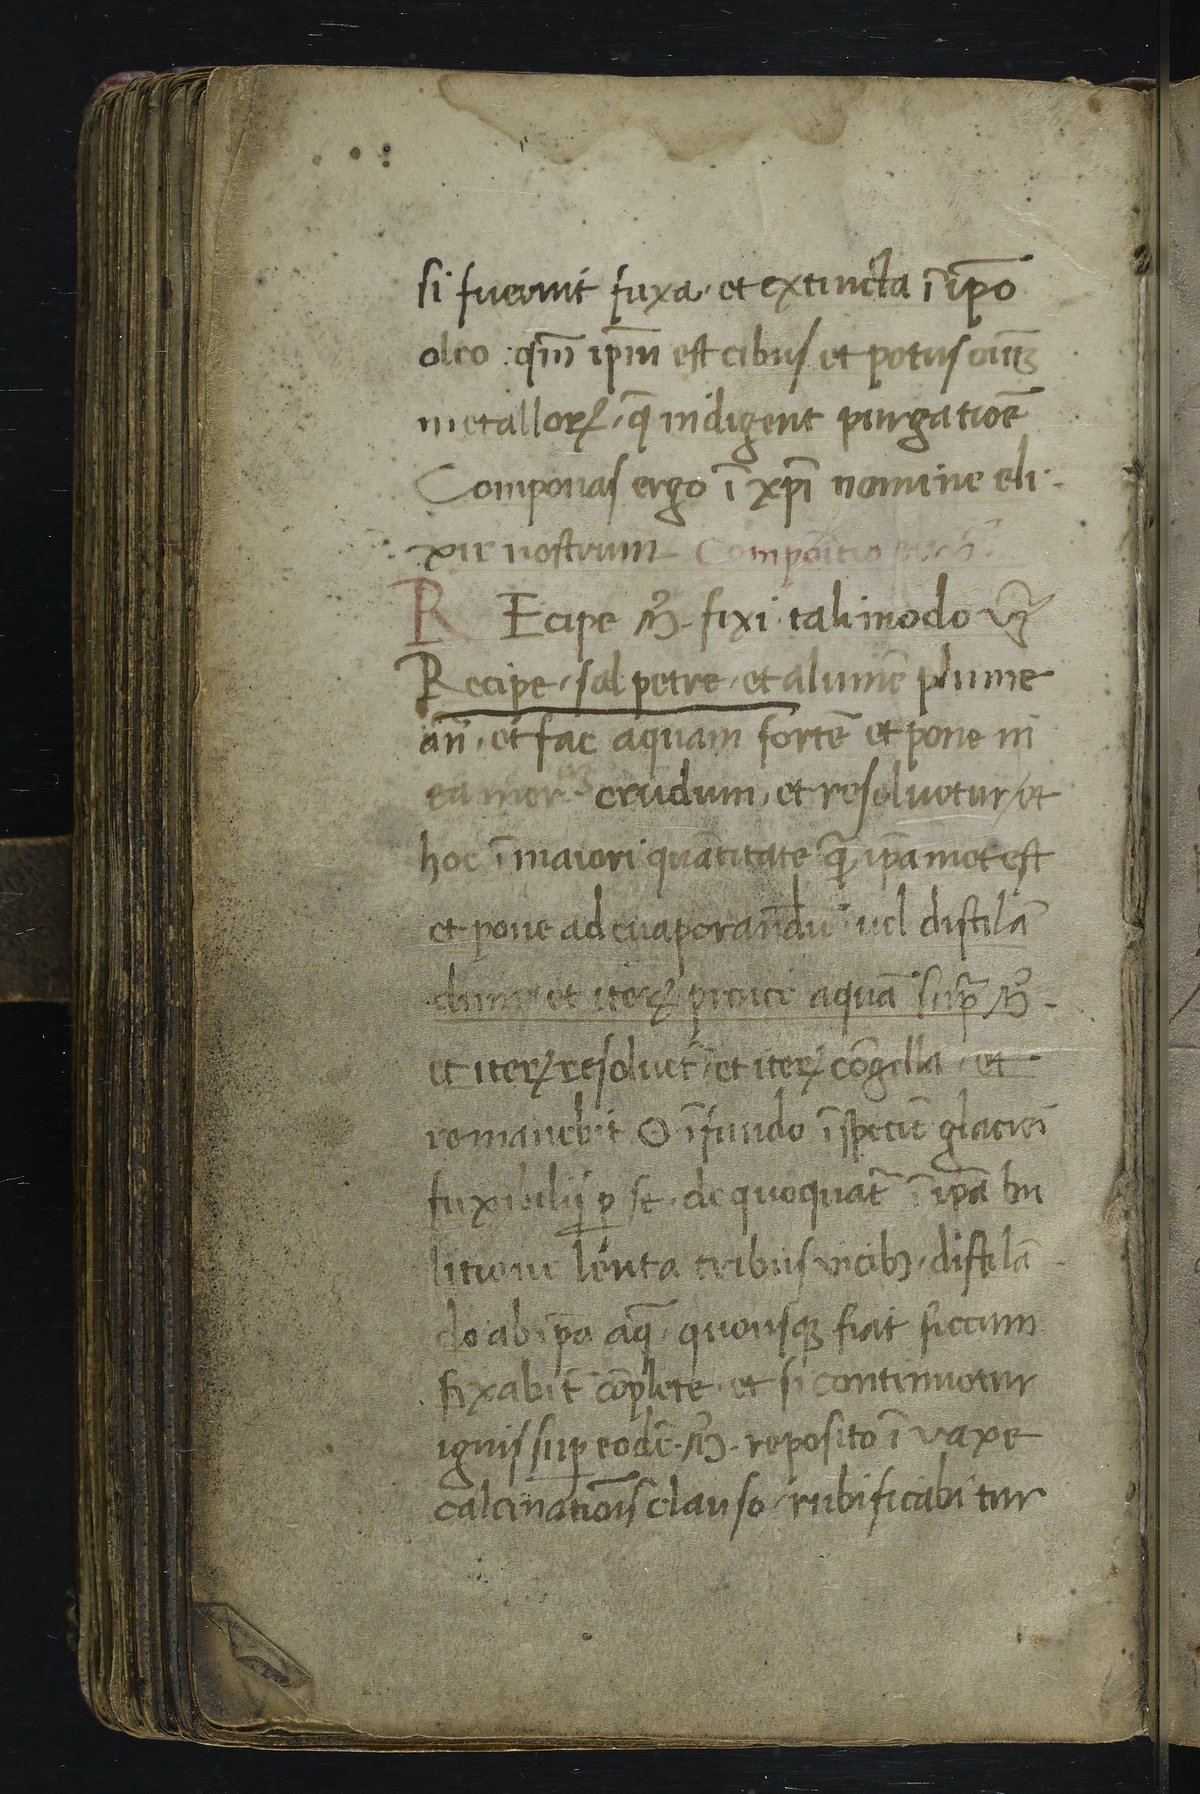 si fuerint fuxa · et extincta ī ip̄o
oleo : qm̄ ip̄m est cibus et potus oīuꝫ
metalloꝝ · q̄ indigent purgatiōe
Componas ergo ī xp̄i nomine eli-
xir nostrum Compoītio
R Ecipe fixi tali modo
Recipe · sal petre · et alumē plume
an̄ · et fac aquam fortē et pone in
ea mer crudum · et resoluetur / et
hoc ī maiori quātitate q̄ ip̄amet est
et pone ad euaporandū uel distilā
dum et iteꝝ aquā sup̄
et iteꝝ resoluet̄ · et iteꝝ cōgella · et
remanebit ī fundo ī specie glaciei
fuxibilis ꝑ se · dequoquat̄ ī ip̄a bu
litione lenta tribus uicibꝫ · distilā
do ab ip̄a aq̄ · quousqꝫ fiat siccum
fixabit̄ cōplete · et si continuetur
ignis suꝑ eodē · reposito ī uaxe
calcinatiōis clauso · rubificabitur